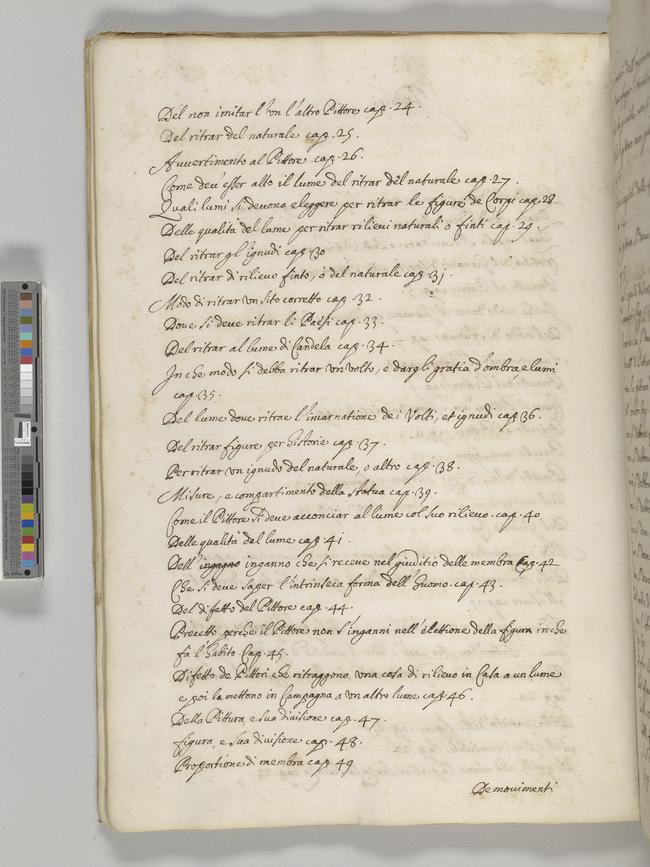 Del non imitar l'vn l'altro Pittore cap. 24.
Del ritrar del naturale cap. 25.
Avvertimento al Pittore cap. 26.
Come deu' esser alto il lume del ritrar del naturale cap. 27.
Quali lumi si devono eleggere per ritrar le figure de Corpi cap. 28
Delle qualità del lume per ritrar rilievi naturali o finti cap. 29.
Del ritrar gl'ignudi cap. 30
Del ritrar di rilievo finto, ò del naturale cap. 31.
Modo di ritrar vn sito corretto cap. 32.
Dove si deve ritrar li Paesi cap. 33.
Del ritrar al lume di Candela cap. 34.
In che modo si debba ritrar vn volto, e dargli gratia d'ombra, e lumi
cap. 35.
Del lume dove ritrae l'incarnatione de i Volti, et ignudi cap. 36.
Del ritrar figure per historie cap. 37.
Per ritrar vn ignudo del naturale, o altro cap. 38.
Misure, e compartimento della statua cap. 39.
Come il Pittore si deve acconciar al lume col suo rilievo. cap. 40
Delle qualità del lume cap. 41.
Dell' ingagno inganno che si receve nel giuditio delle membra Cap. 42
Che si deve saper l'intrinseca forma dell' huomo. cap. 43.
Del difetto del Pittore cap. 44.
Precetto perche il Pittore non s'inganni nell' elettione della figura in che
fà l'habito Cap. 45.
Difetto de Pittori che ritraggono vna cosa di rilievo in Casa a un lume
e poi la mettono in Campagna a vn altro lume cap. 46.
Della Pittura, e sua divisione cap. 47.
figura, e sua divisione cap. 48.
Proportione di membra cap. 49
De movimenti